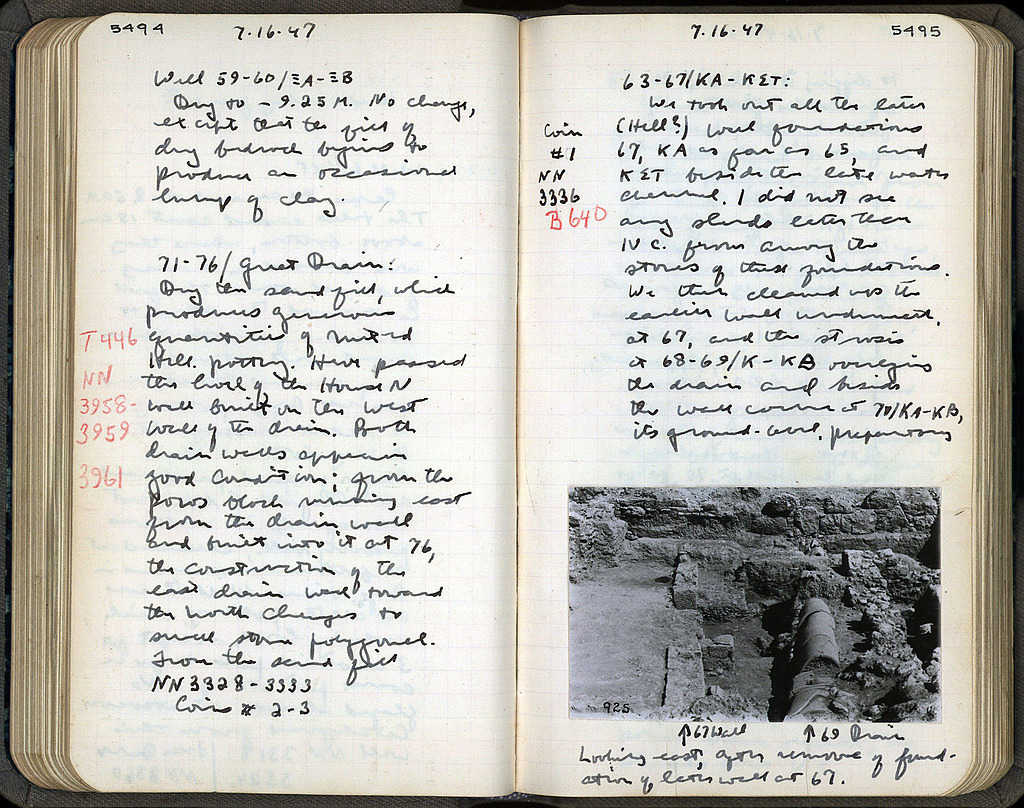 5494
7·16·47
Well 59-60/ΞA-ΞB
Dug to - 9.25 M. No change,
except that the fill of
dug bedrock begins to
produce an occasional
lump of clay.
71-76/ Great Drain:
Dug the sand fill, which
produces generous
T 446
quantities of mixed
Hell. pottery. Have passed
NN
the level of the House N
3958-
wall built on the west
3959
wall of the drain. Both
drain walls appear in
3961
good condition; from the
poros block running east
from the drain wall
and built into it at 76,
the construction of the
east drain wall toward
the north changes to
small stone polygonal.
From the sand fill
NN 3328-3333
Coins # 2-3
7·16·47
5495
63-67/KA-KΣT:
We took out all the later
Coin
(Hell?) wall foundations
#1
67, KA as far as 65, and
NN
KΣT beside the late water
3336
channel. I did not see
B 640
any sherds later than
IV c. from among the
stones of these foundations.
We then cleaned up the
earlier wall underneath,
at 67, and the strosis
at 68-69/K-KB overlying
the drain and beside
the wall corner at 70/KA-KB,
its ground-level, preparatory
925
↑67 Wall
↑69 Drain
Looking east, after removal of found-
ation of later wall at 67.